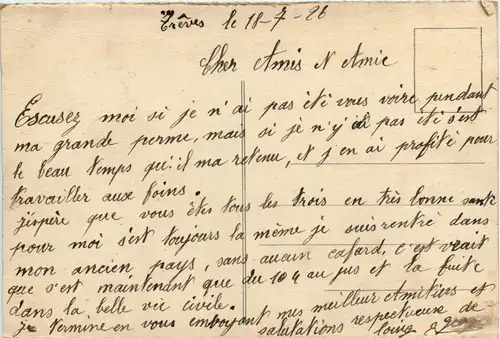 Trêves le 18-7-26
Cher Amis N Amie
Escusez moi si je n'ai pas été vous voire pendant
ma grande perme, mais si je n'y ai pas été s'est
le beau temps qu'il ma retenu, et j'en ai profité pour
travailler aux foins.
J'ispère que vous êtes tous les trois en très bonne santé
pour moi s'est toujours la même je suis rentré dans
mon ancien pays, sans aucun cafard, c'est vrait
que s'est maintenant que du 104 au jus et la fuite
dans la belle vie civile.
Je termine en vous emboyant mes meilleur Amitiers et
salutations respectueuse de
loing